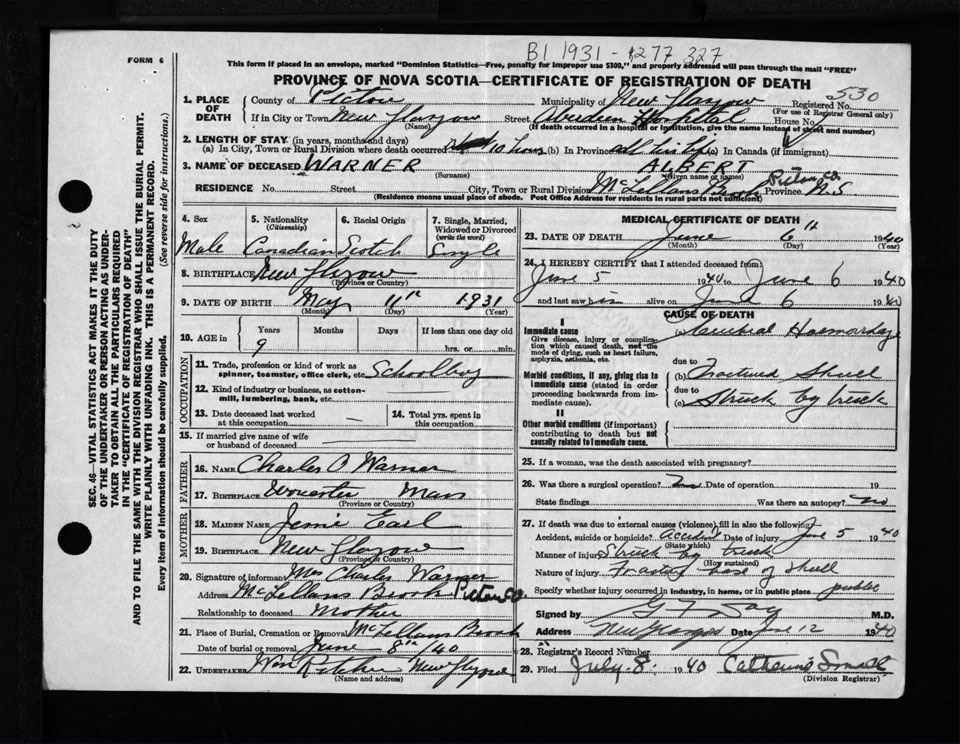 B1 1931 - 277 327
FORM 6
This form if placed in an envelope, marked "Dominion Statistics—Free, penalty for improper use $300," and properly addressed will pass through the mail "FREE"
PROVINCE OF NOVA SCOTIA—CERTIFICATE OF REGISTRATION OF DEATH
1. PLACE OF DEATH County of Pictou Municipality of New Glasgow Registered No. 530
(For use of Registrar General only)
If in City or Town New Glasgow (Name) Street Aberdeen Hospital House No.
(If death occurred in a hospital or institution, give the name instead of street and number)
2. LENGTH OF STAY (in years, months and days)
(a) In City, Town or Rural Division where death occurred 10 hours (b) In Province all his life (c) In Canada (if immigrant)
3. NAME OF DECEASED WARNER ALBERT
(Surname) (Given name or names)
RESIDENCE No. Street City, Town or Rural Division McLellans Brook Pictou Co. Province N.S.
(Residence means usual place of abode. Post Office Address for residents in rural parts not sufficient)
4. Sex Male
5. Nationality (Citizenship) Canadian
6. Racial Origin Scotch
7. Single, Married, Widowed or Divorced (write the word) Single
8. BIRTHPLACE New Glasgow
(Province or Country)
9. DATE OF BIRTH May 11th 1931
(Month) (Day) (Year)
10. AGE in Years Months Days If less than one day old
9 hrs. or min.
OCCUPATION
11. Trade, profession or kind of work as spinner, teamster, office clerk, etc. Schoolboy
12. Kind of industry or business, as cotton-mill, lumbering, bank, etc.
13. Date deceased last worked at this occupation —
14. Total yrs. spent in this occupation
15. If married give name of wife or husband of deceased —
FATHER
16. NAME Charles O Warner
17. BIRTHPLACE Worcester Mass
(Province or Country)
MOTHER
18. MAIDEN NAME Jennie Earl
19. BIRTHPLACE New Glasgow
(Province or Country)
20. Signature of informant Mrs Charles Warner
Address McLellans Brook Pictou Co.
Relationship to deceased Mother
21. Place of Burial, Cremation or Removal McLellans Brook
Date of burial or removal June 8th/40
22. UNDERTAKER New Glasgow
(Name and address)
MEDICAL CERTIFICATE OF DEATH
23. DATE OF DEATH June 6th 1940
(Month) (Day) (Year)
24. I HEREBY CERTIFY that I attended deceased from:
June 5 1940 to June 6 1940
and last saw him alive on June 6 1940
CAUSE OF DEATH
I
Immediate cause (a) Cerebral Haemorrhage
Give disease, injury or complication which caused death, not the mode of dying, such as heart failure, asphyxia, asthenia, etc.
due to
Morbid conditions, if any, giving rise to immediate cause (stated in order proceeding backwards from immediate cause).
(b) Fractured Skull
due to
(c) Struck by truck
II
Other morbid conditions (if important) contributing to death but not causally related to immediate cause.
25. If a woman, was the death associated with pregnancy?
26. Was there a surgical operation? no Date of operation 19
State findings Was there an autopsy? no
27. If death was due to external causes (violence) fill in also the following:
Accident, suicide or homicide? accident Date of injury June 5 1940
(State which)
Manner of injury Struck by truck
(How sustained)
Nature of injury Fracture base of skull
Specify whether injury occurred in industry, in home, or in public place public
Signed by G F Day M.D.
Address New Glasgow Date June 12 1940
28. Registrar's Record Number
29. Filed July 8. 1940 Catharine Small
(Division Registrar)
SEC. 46—VITAL STATISTICS ACT MAKES IT THE DUTY OF THE UNDERTAKER OR PERSON ACTING AS UNDERTAKER TO OBTAIN ALL THE PARTICULARS REQUIRED IN THE "CERTIFICATE OF REGISTRATION OF DEATH" AND TO FILE THE SAME WITH THE DIVISION REGISTRAR WHO SHALL ISSUE THE BURIAL PERMIT.
WRITE PLAINLY WITH UNFADING INK. THIS IS A PERMANENT RECORD.
Every item of information should be carefully supplied. (See reverse side for instructions.)